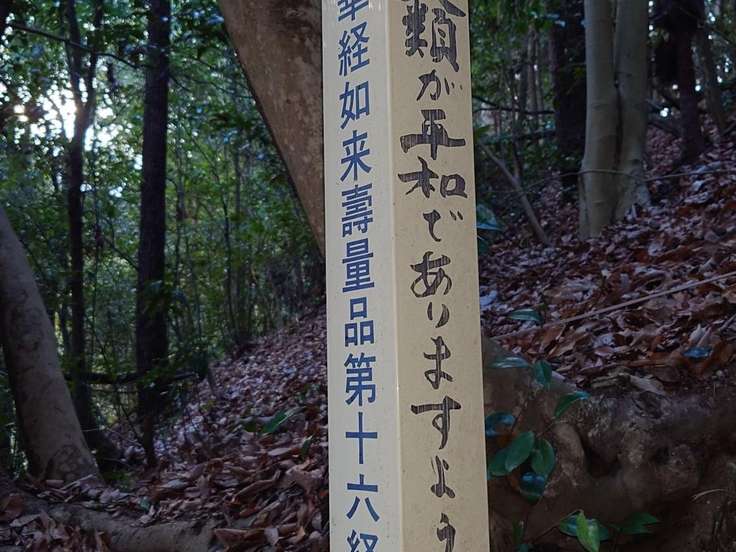 華経如来壽量品第十六経
類が平和でありますよう